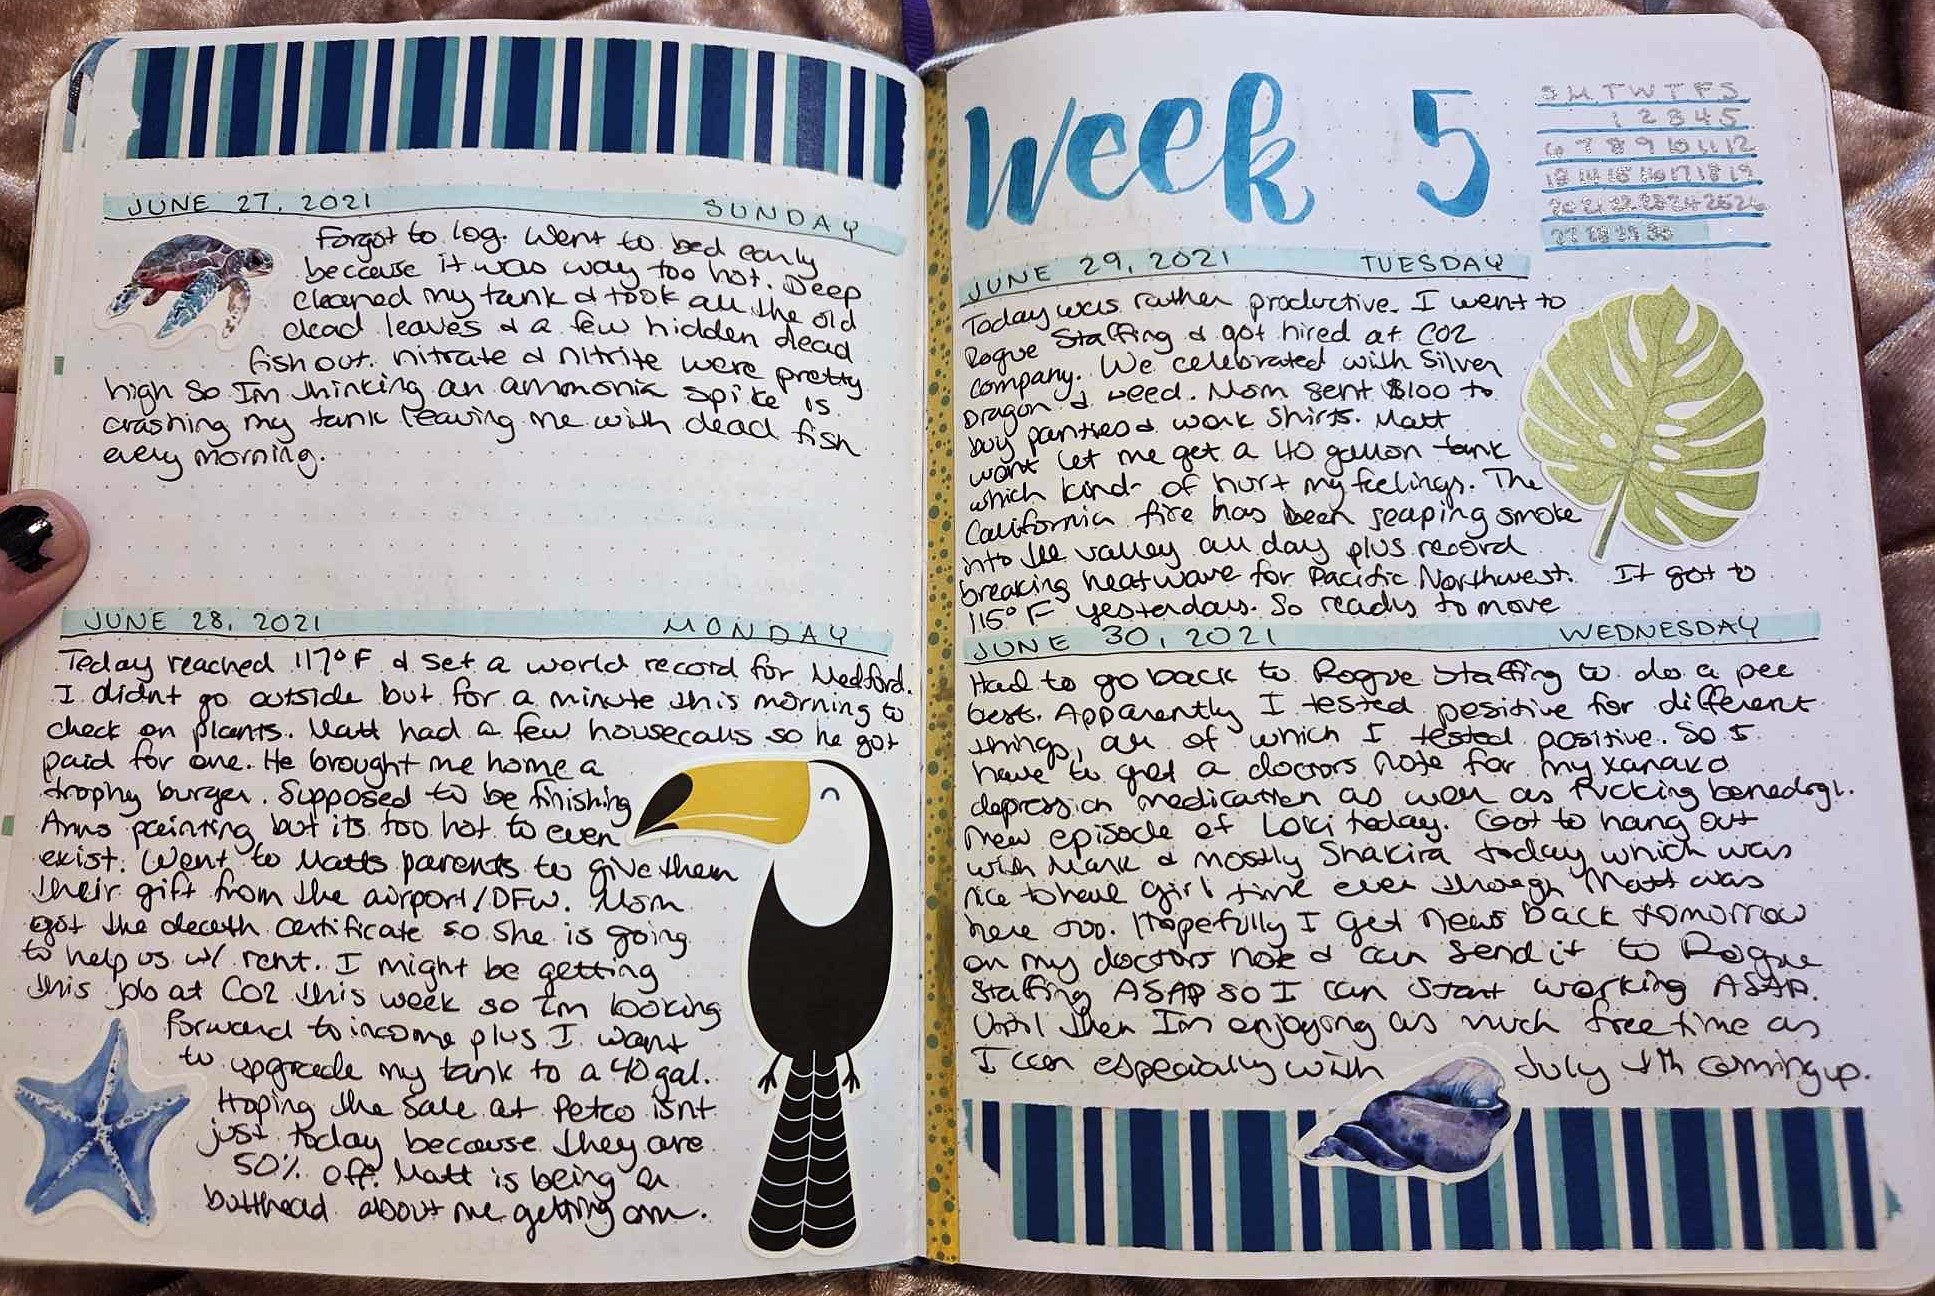 JUNE 27, 2021 SUNDAY
Forgot to log. Went to bed early
because it was way too hot. Deep
cleaned my tank & took all the old
dead leaves & a few hidden dead
fish out. nitrate & nitrite were pretty
high so Im thinking an ammonia spike is
crashing my tank leaving me with dead fish
every morning.
JUNE 28, 2021 MONDAY
Today reached 117°F & set a world record for Medford.
I didnt go outside but for a minute this morning to
check on plants. Matt had a few housecalls so he got
paid for one. He brought me home a
trophy burger. Supposed to be finishing
Anns painting but its too hot to even
exist. Went to Matts parents to give them
their gift from the airport/DFW. Mom
got the death certificate so she is going
to help us w/ rent. I might be getting
this job at CO2 this week so Im looking
forward to income plus I want
to upgrade my tank to a 40 gal.
Hoping the sale at Petco isnt
just today because they are
50% off. Matt is being a
butthead about me getting one.
Week 5
S M T W T F S
1 2 3 4 5
6 7 8 9 10 11 12
13 14 15 16 17 18 19
20 21 22 23 24 25 26
27 28 29 30
JUNE 29, 2021 TUESDAY
Today was rather productive. I went to
Rogue Staffing & got hired at CO2
company. We celebrated with Silver
Dragon & weed. Mom sent $100 to
buy panties & work shirts. Matt
wont let me get a 40 gallon tank
which kind of hurt my feelings. The
California fire has been seaping smoke
into the valley all day plus record
breaking heatwave for Pacific Northwest. It got to
115°F yesterday. So ready to move
JUNE 30, 2021 WEDNESDAY
Had to go back to Rogue Staffing to do a pee
test. Apparently I tested positive for different
things, all of which I tested positive. So I
have to get a doctors note for my xanax &
depression medication as well as fucking
New episode of Loki today. Got to hang out
with Mark & mostly Shakira today which was
nice to have girl time even though Matt was
here too. Hopefully I get news back tomorrow
on my doctors note & can send it to Rogue
Staffing ASAP so I can start working ASAP.
Until then Im enjoying as much free time as
I can especially with July 4th coming up.